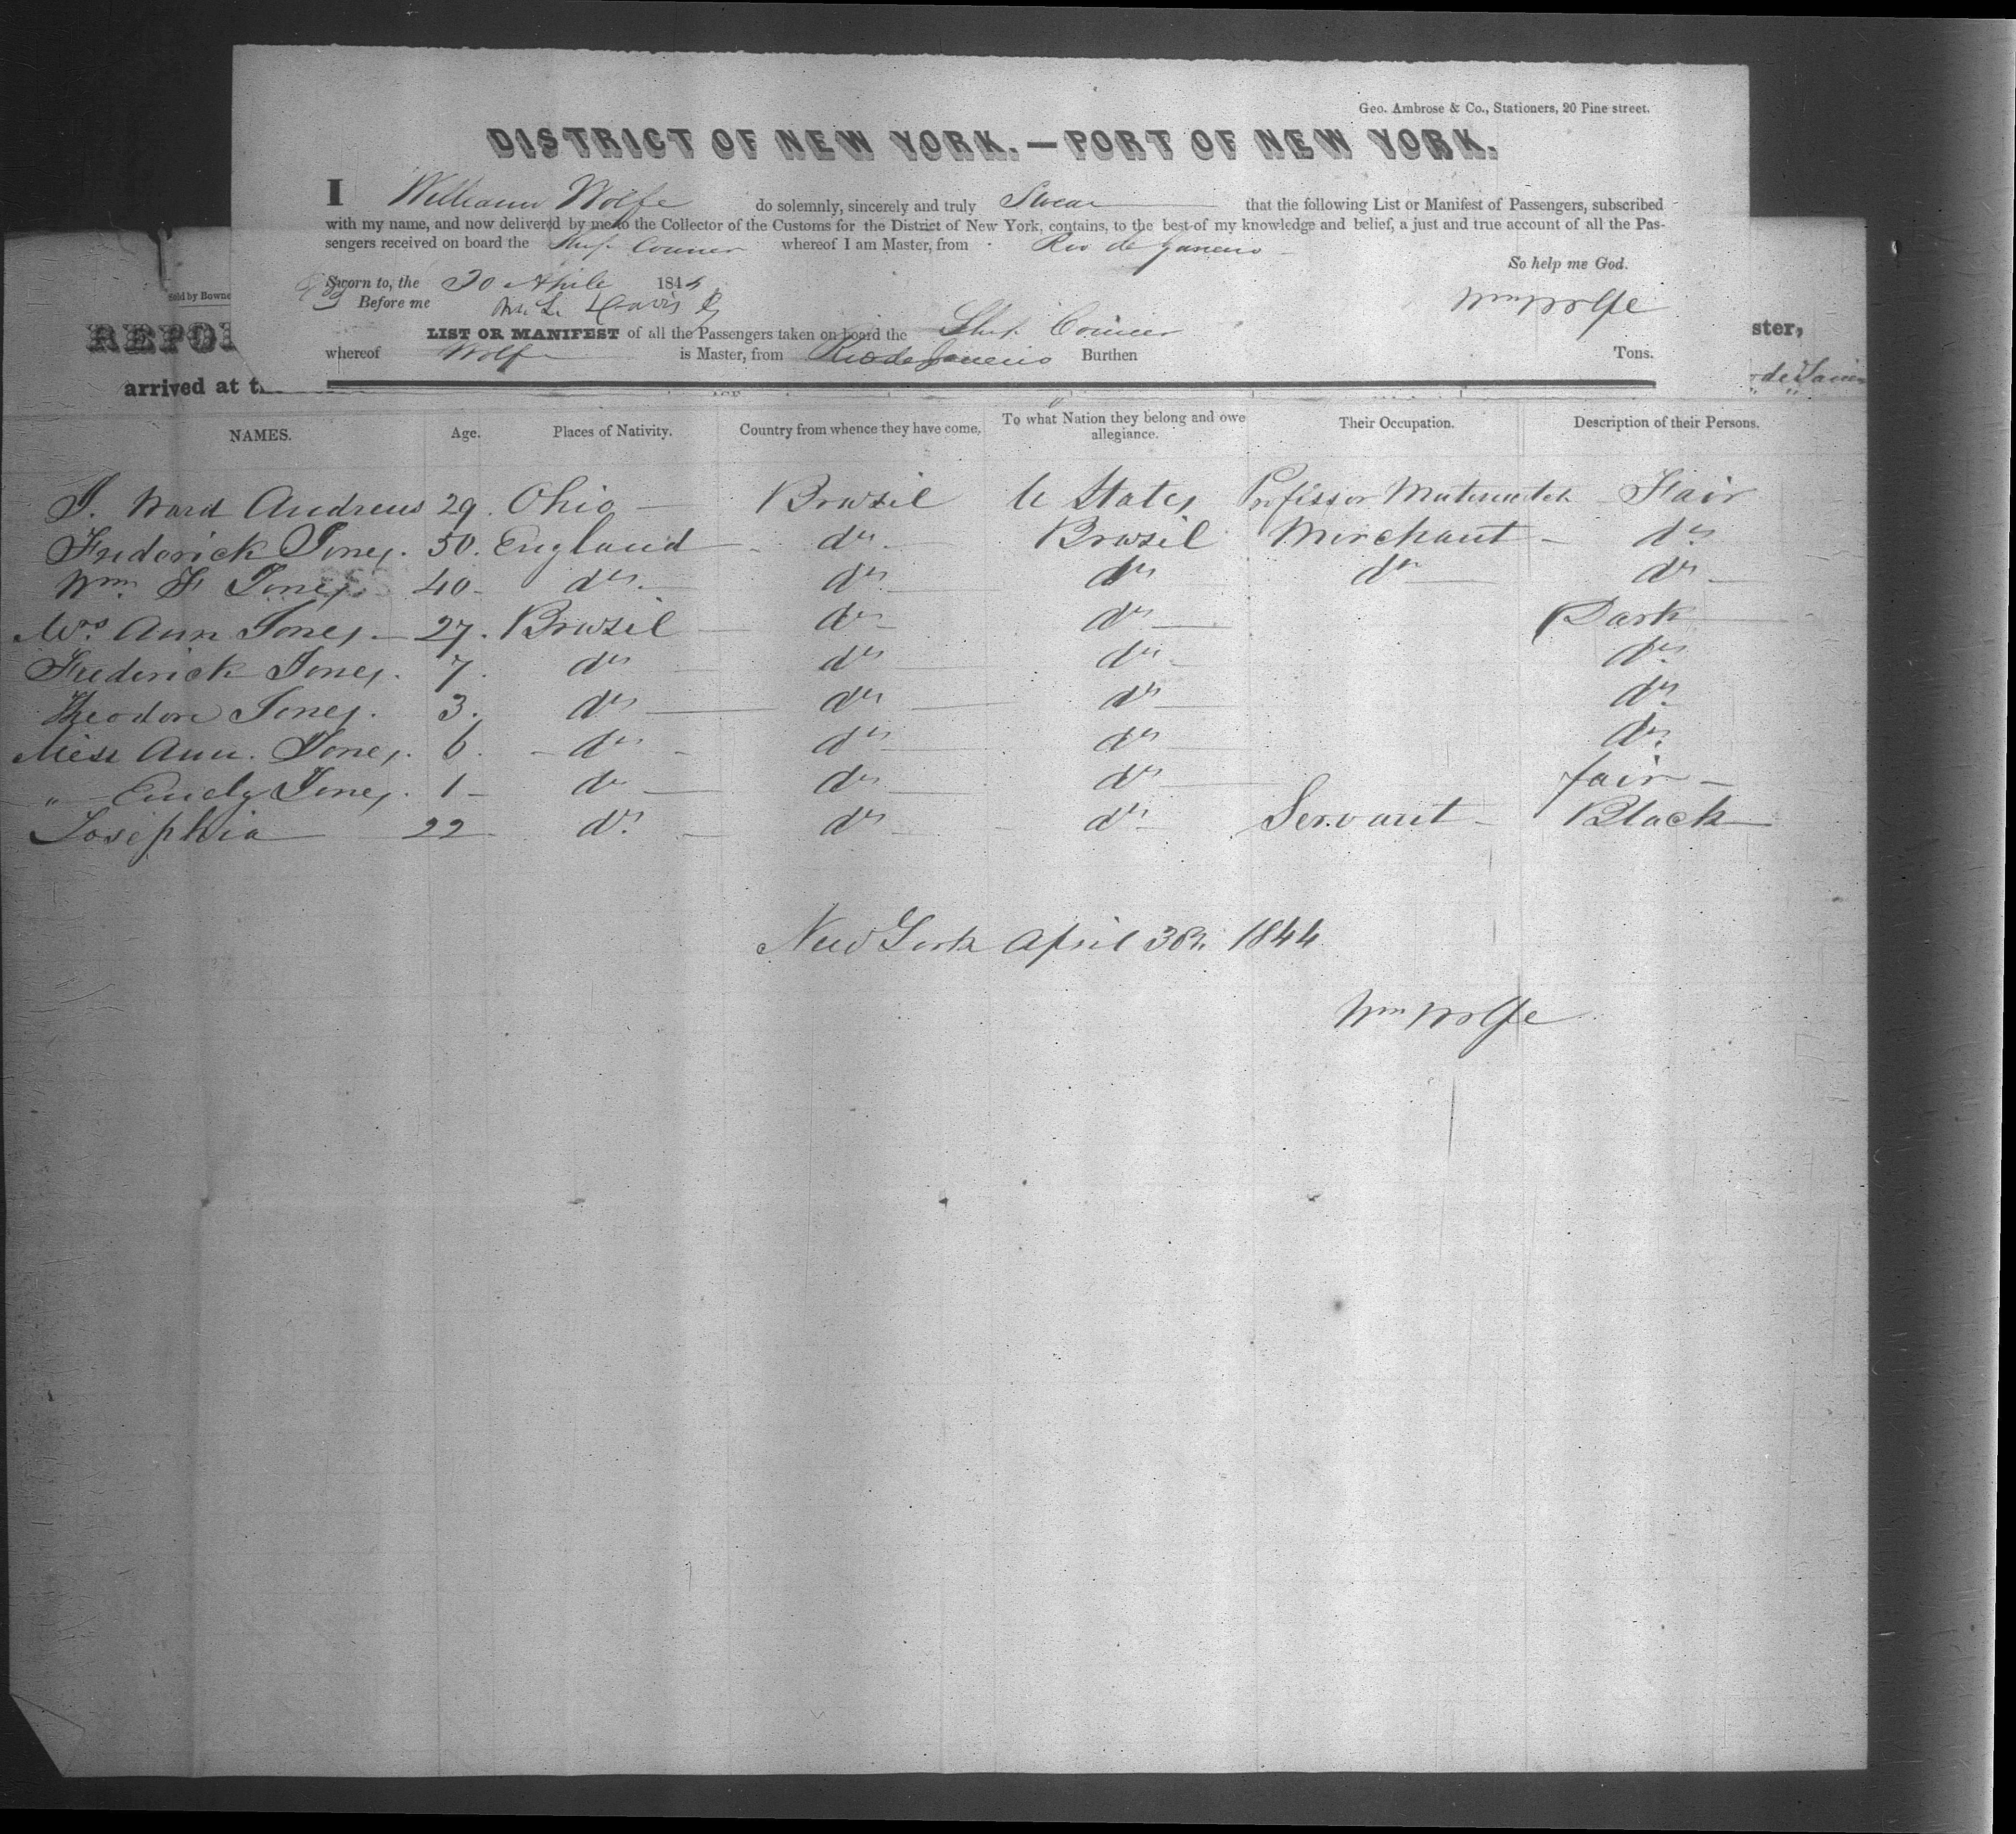 Geo. Ambrose & Co., Stationers, 20 Pine street.
DISTRICT OF NEW YORK.—PORT OF NEW YORK.
I William Wolfe do solemnly, sincerely and truly Swear that the following List or Manifest of Passengers, subscribed
with my name, and now delivered by me to the Collector of the Customs for the District of New York, contains, to the best of my knowledge and belief, a just and true account of all the Pas-
sengers received on board the Ship Courier whereof I am Master, from Rio de Janeiro
So help me God.
Sworn to, the 30 April 1844
Before me Davis Wm Wolfe
LIST OR MANIFEST of all the Passengers taken on board the Ship Courier
whereof Wolfe is Master, from Rio de Janeiro Burthen Tons.
Sold by Bowne
REPO
ster,
arrived at t
de Janei
NAMES. Age. Places of Nativity. Country from whence they have come. To what Nation they belong and owe allegiance. Their Occupation. Description of their Persons.
J. Ward Andrews 29. Ohio Brazil U States Professor Fair
Frederick Jones. 50. England do Brazil Merchant do
Wm. F Jones 40 do do do do do
Mrs. Ann Jones 27. Brazil do do Dark
Frederick Jones. 7. do do do do
Theodore Jones. 3. do do do do
Miss Ann. Jones. 6. do do do do
" Emely Jones. 1 do do do fair
Josephia 22 do do do Servant Black
New York April 30th 1844
Wm Wolfe